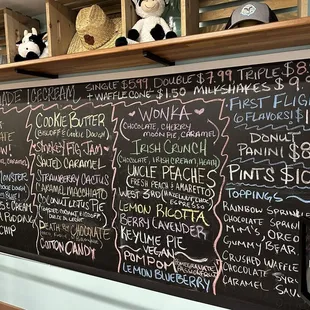 ADE ICECREAM
SINGLE $5.99 DOUBLE $7.99 TRIPLE $8
+ WAFFLE CONE $1.50 MILKSHAKES $9
COOKIE BUTTER
(BISCOFF & COOKIE DOUGH)
HONEY FIG JAM
SALTED CARAMEL
STRAWBERRY CACTUS
CARAMEL MACCHIATO
COCONUT LOTUS PIE
DEATH BY CHOCOLATE
COTTON CANDY
WONKA
CHOCOLATE, CHERRY
MOON PIE, CARAMEL
IRISH CRUNCH
(CHOCOLATE, IRISH CREAM, HEATH)
UNCLE PEACHES
(FRESH PEACH & AMARETTO)
WEST 3RD
ESPRESSO
LEMON RICOTTA
BERRY LAVENDER
KEYLIME PIE
~ VEGAN ~
POM POM
LEMON BLUEBERRY
FIRST FLIGH
6 FLAVORS! $
DONUT
PANINI $8
PINTS $10
TOPPINGS
RAINBOW SPRIN
CHOCOLATE SPRIN
M+M'S, OREO
GUMMY BEAR
CRUSHED WAFFLE
CHOCOLATE SY
CARAMEL SAU